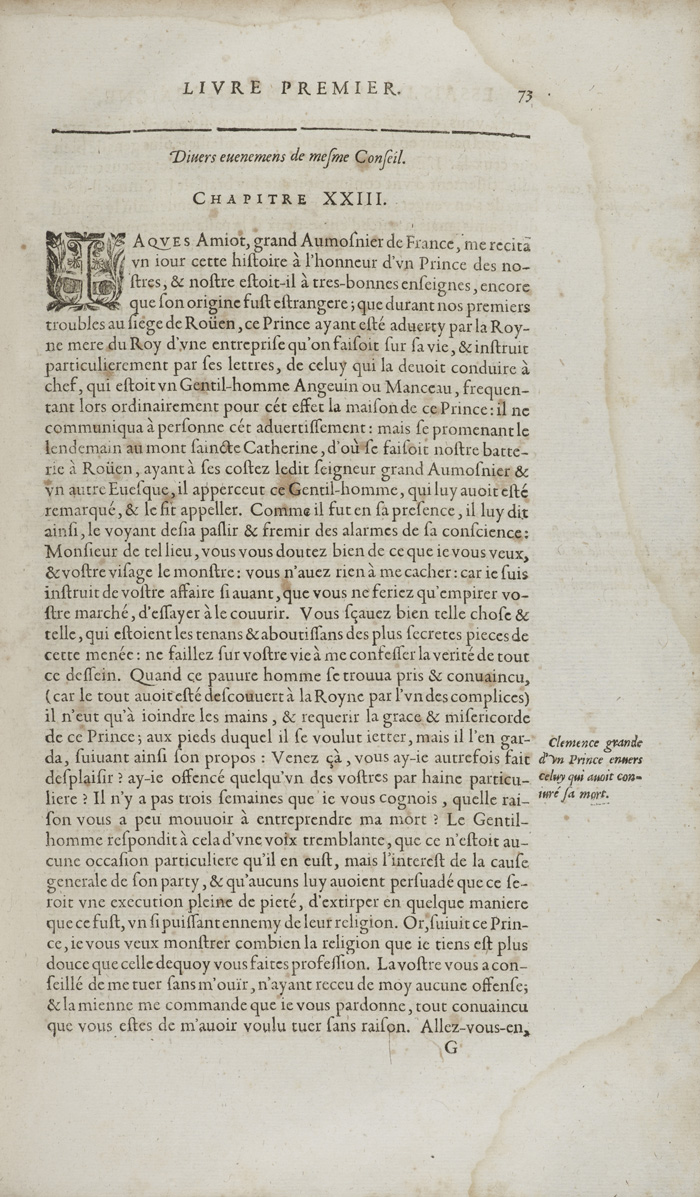 LIVRE PREMIER.
73
Diuers euenemens de meſme Conſeil.
CHAPITRE XXIII.
IAQVES Amiot, grand Aumoſnier de France, me recita
vn iour cette hiſtoire à l'honneur d'vn Prince des no-
ſtres, & noſtre eſtoit-il à tres-bonnes enſeignes, encore
que ſon origine fuſt eſtrangere; que durant nos premiers
troubles au ſiege de Roüen, ce Prince ayant eſté aduerty par la Roy-
ne mere du Roy d'vne entrepriſe qu'on faiſoit ſur ſa vie, & inſtruit
particulierement par ſes lettres, de celuy qui la deuoit conduire à
chef, qui eſtoit vn Gentil-homme Angeuin ou Manceau, frequen-
tant lors ordinairement pour cét effet la maiſon de ce Prince: il ne
communiqua à perſonne cét aduertiſſement: mais ſe promenant le
lendemain au mont ſaincte Catherine, d'où ſe faiſoit noſtre batte-
rie à Roüen, ayant à ſes coſtez ledit ſeigneur grand Aumoſnier &
vn autre Eueſque, il apperceut ce Gentil-homme, qui luy auoit eſté
remarqué, & le fit appeller. Comme il fut en ſa preſence, il luy dit
ainſi, le voyant deſia paſlir & fremir des alarmes de ſa conſcience:
Monſieur de tel lieu, vous vous doutez bien de ce que ie vous veux,
& voſtre viſage le monſtre: vous n'auez rien à me cacher: car ie ſuis
inſtruit de voſtre affaire ſi auant, que vous ne feriez qu'empirer vo-
ſtre marché, d'eſſayer à le couurir. Vous ſçauez bien telle choſe &
telle, qui eſtoient les tenans & aboutiſſans des plus ſecretes pieces de
cette menée: ne faillez ſur voſtre vie à me confeſſer la verité de tout
ce deſſein. Quand ce pauure homme ſe trouua pris & conuaincu,
(car le tout auoit eſté deſcouuert à la Royne par l'vn des complices)
il n'eut qu'à ioindre les mains, & requerir la grace & miſericorde
de ce Prince; aux pieds duquel il ſe voulut ietter, mais il l'en gar-
da, ſuiuant ainſi ſon propos: Venez çà, vous ay-ie autrefois fait
deſplaiſir? ay-ie offencé quelqu'vn des voſtres par haine particu-
liere? Il n'y a pas trois ſemaines que ie vous cognois, quelle rai-
ſon vous a peu mouuoir à entreprendre ma mort? Le Gentil-
homme reſpondit à cela d'vne voix tremblante, que ce n'eſtoit au-
cune occaſion particuliere qu'il en euſt, mais l'intereſt de la cauſe
generale de ſon party, & qu'aucuns luy auoient perſuadé que ce ſe-
roit vne execution pleine de pieté, d'extirper en quelque maniere
que ce fuſt, vn ſi puiſſant ennemy de leur religion. Or, ſuiuit ce Prin-
ce, ie vous veux monſtrer combien la religion que ie tiens eſt plus
douce que celle dequoy vous faites profeſſion. La voſtre vous a con-
ſeillé de me tuer ſans m'ouïr, n'ayant receu de moy aucune offenſe;
& la mienne me commande que ie vous pardonne, tout conuaincu
que vous eſtes de m'auoir voulu tuer ſans raiſon. Allez-vous-en,
G
Clemence grande
d'vn Prince enuers
celuy qui auoit con-
iuré ſa mort.